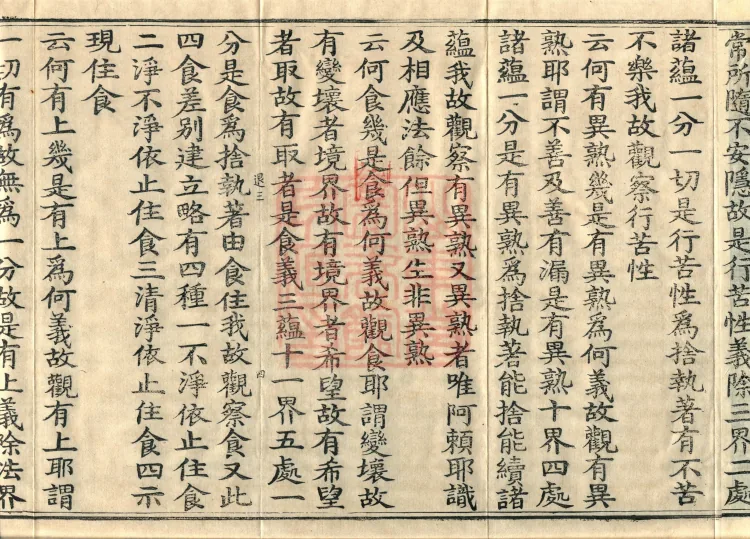 常所隨不安隱故是行苦性義除三界二處
諸蘊一分一切是行苦性爲捨執著有不苦
不樂我故觀察行苦性
云何有異熟幾是有異熟爲何義故觀有異
熟耶謂不善及善有漏是有異熟十界四處
諸蘊一分是有異熟爲捨執著能捨能續諸
蘊我故觀察有異熟又異熟者唯阿賴耶識
及相應法餘但異熟生非異熟
云何食幾是食爲何義故觀食耶謂變壞故
有變壞者境界故有境界者希望故有希望
者取故有取者是食義三蘊十一界五處一
退三
四
分是食爲捨執著由食住我故觀察食又此
四食差別建立略有四種一不淨依止住食
二淨不淨依止住食三清淨依止住食四示
現住食
云何有上幾是有上爲何義故觀有上耶謂
一切有爲故無爲一分故是有上義除法界